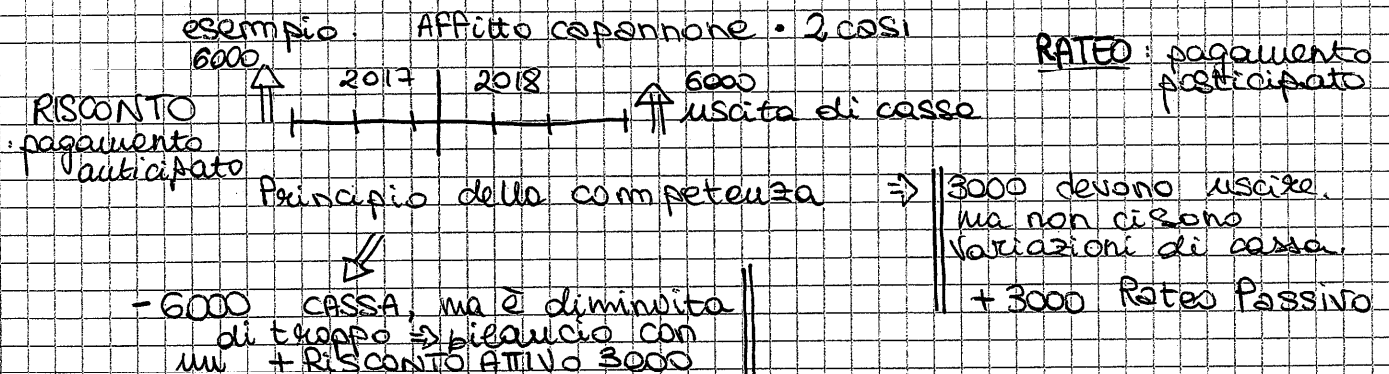 esempio. Affitto capannone • 2 casi
6000
2017 2018
6000
uscita di cassa
RATEO: pagamento
posticipato
RISCONTO
: pagamento
anticipato
Principio della competenza ⇒
3000 devono uscire.
ma non ci sono
variazioni di cassa.
+ 3000 Rateo Passivo
- 6000 CASSA, ma è diminuita
di troppo ⇒ bilancio con
un + RISCONTO ATTIVO 3000